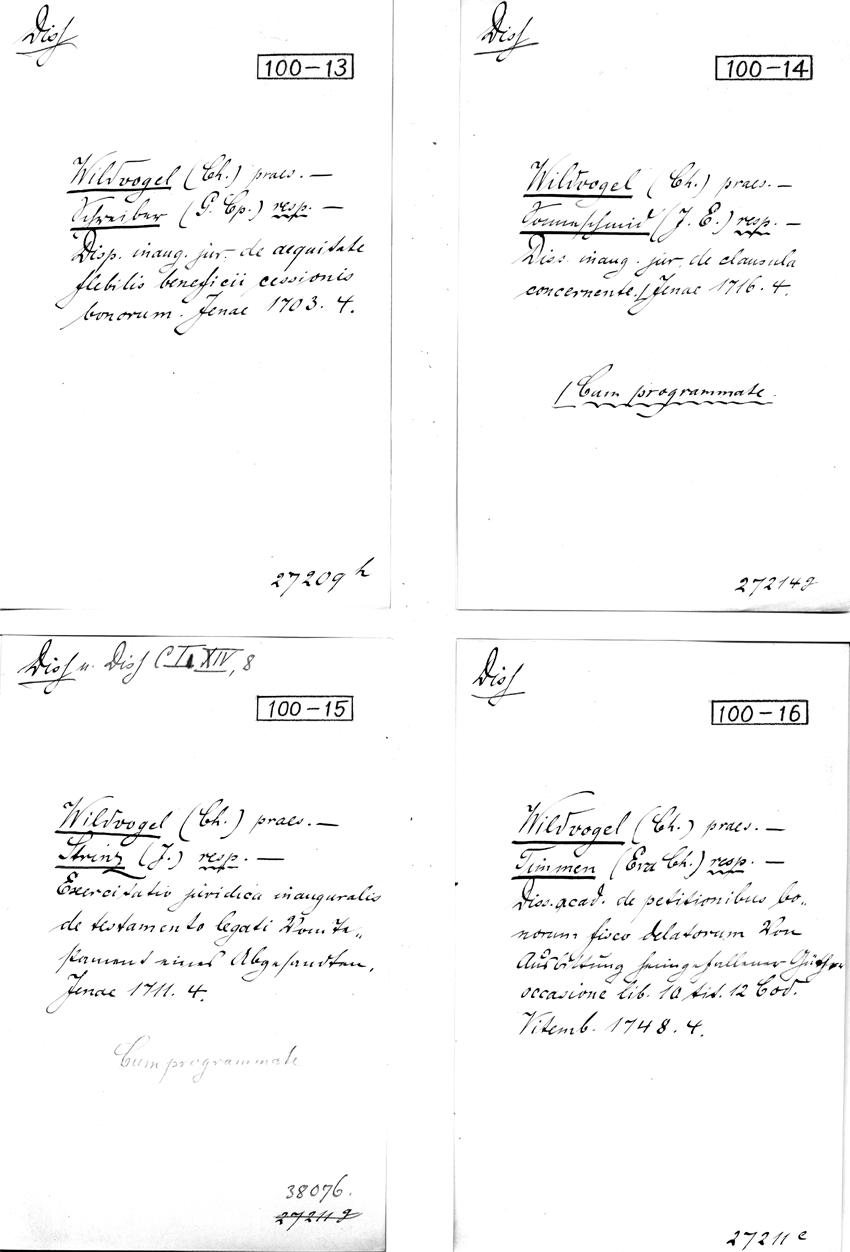 Diss
100-13
Wildvogel (Ch.) praes. —
Schreiber (G. Cp.) resp. —
Disp. inaug. jur. de aequitate
flebilis beneficii cessionis
bonorum. Jenae 1703. 4.
27209 h
Diss
100-14
Wildvogel (Ch.) praes. —
Sonneschmid (J. E.) resp. —
Diss. inaug. jur. de clausula
concernente./ Jenae 1716. 4.
/ Cum programmate.
27214 g
Diss u. Diss C I, XIV, 8
100-15
Wildvogel (Ch.) praes. —
Strinz (J.) resp. —
Exercitatio juridica inauguralis
de testamento legati Vom Te„
stament eines Abgesandten,
Jenae 1711. 4.
Cum programmate
38076.
27211 g
Diss
100-16
Wildvogel (Ch.) praes. —
Timmen (Erd Ch.) resp. —
Diss. acad. de petitionibus bo„
norum fisco delatorum Von
Ausbittung heimgefallener Güther
occasione lib. 10 tit. 12 Cod.
Vitemb. 1748. 4.
27211 e